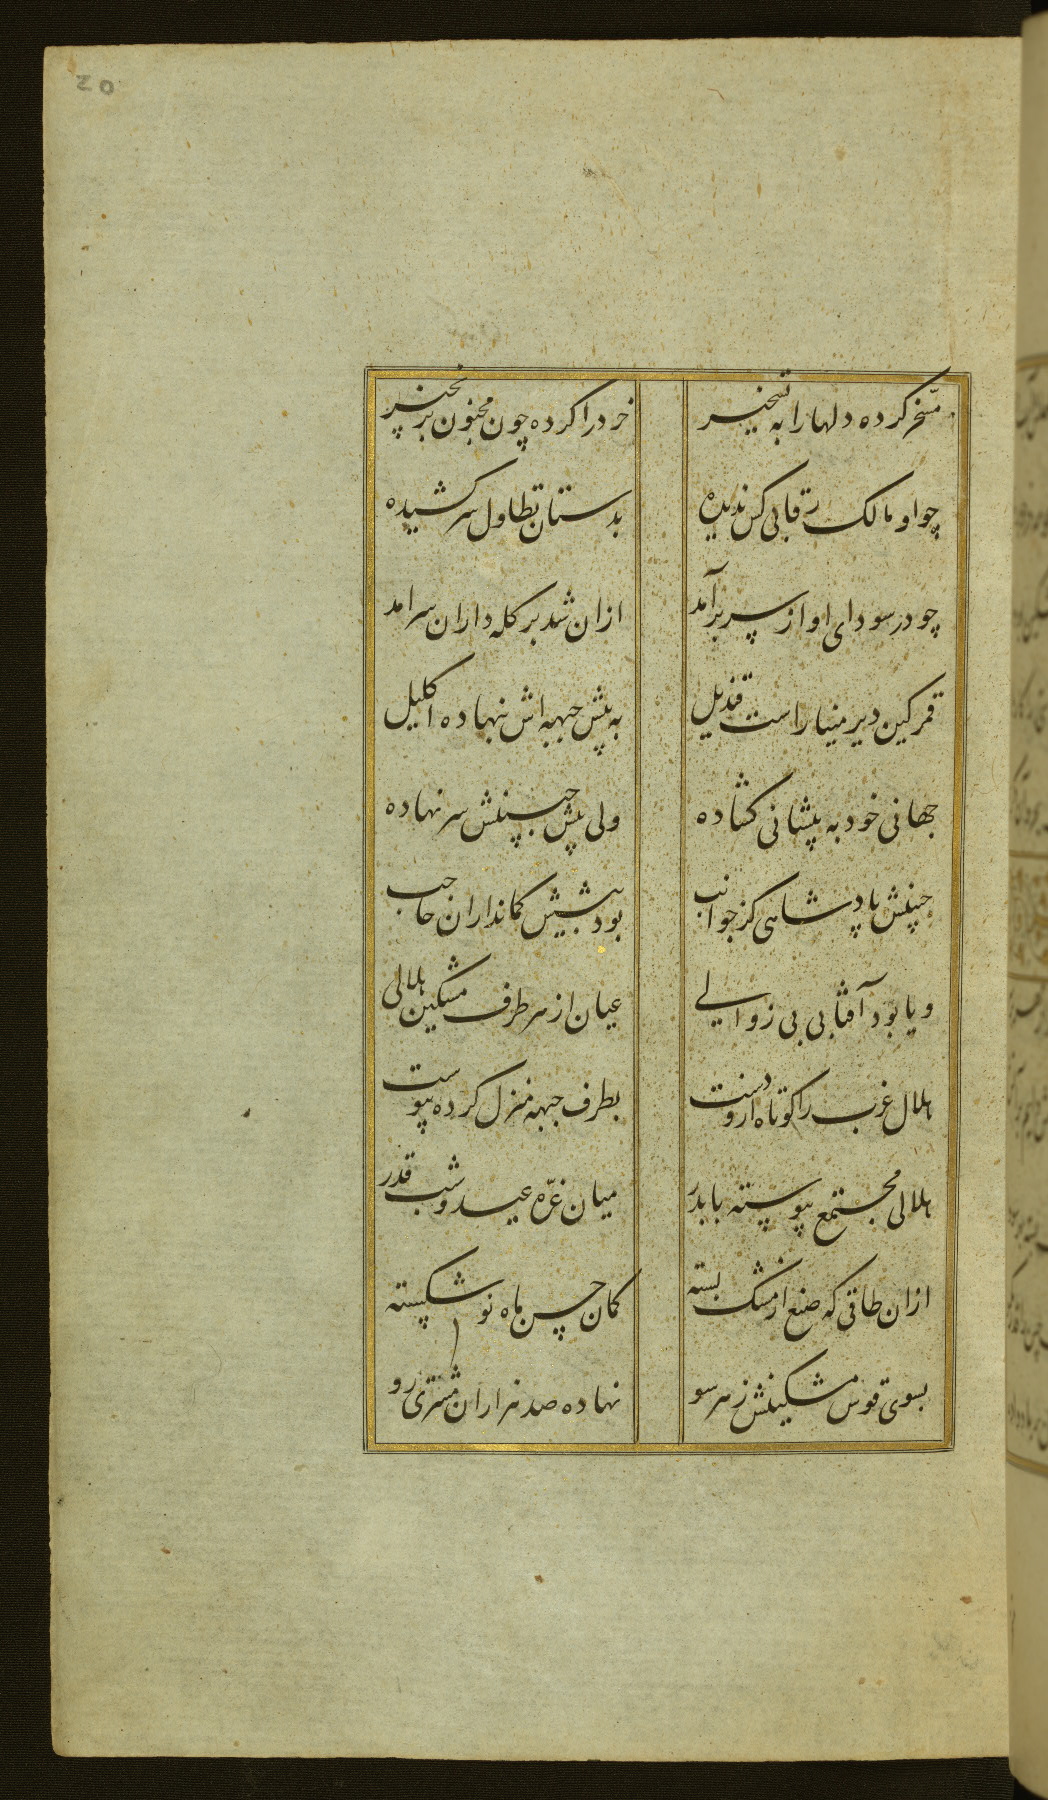 20
مسخر کرده دلها را به تسخیر خرد را کرده چون مجنون بزنجیر
چو او مالک رقابی کس ندیده بدستان تطاول سر کشیده
چو در سودای او از سر برآمد ازان شد بر کله داران سرامد
قمر کین دیر مینا راست قندیل به پیش جبهه اش بنهاده اکلیل
جهانی خود به پیشانی کشاده ولی پیش جبینش سر نهاده
جبینش پادشاهی کز جوانب بود پیشش کمانداران حاجب
و یا بود آفتابی بی زوالی عیان از هر طرف مشکین هلالی
هلال غرب را کوتاه ازو دست بطرف جبهه منزل کرده پیوست
هلالی مجتمع پیوسته با بدر میان غره عید و شب قدر
ازان طاقی که صنع از مشک بسته کمان حسن ماه نو شکسته
بسوی قوس مشکینش ز هر سو نهاده صد هزاران مشتری رو